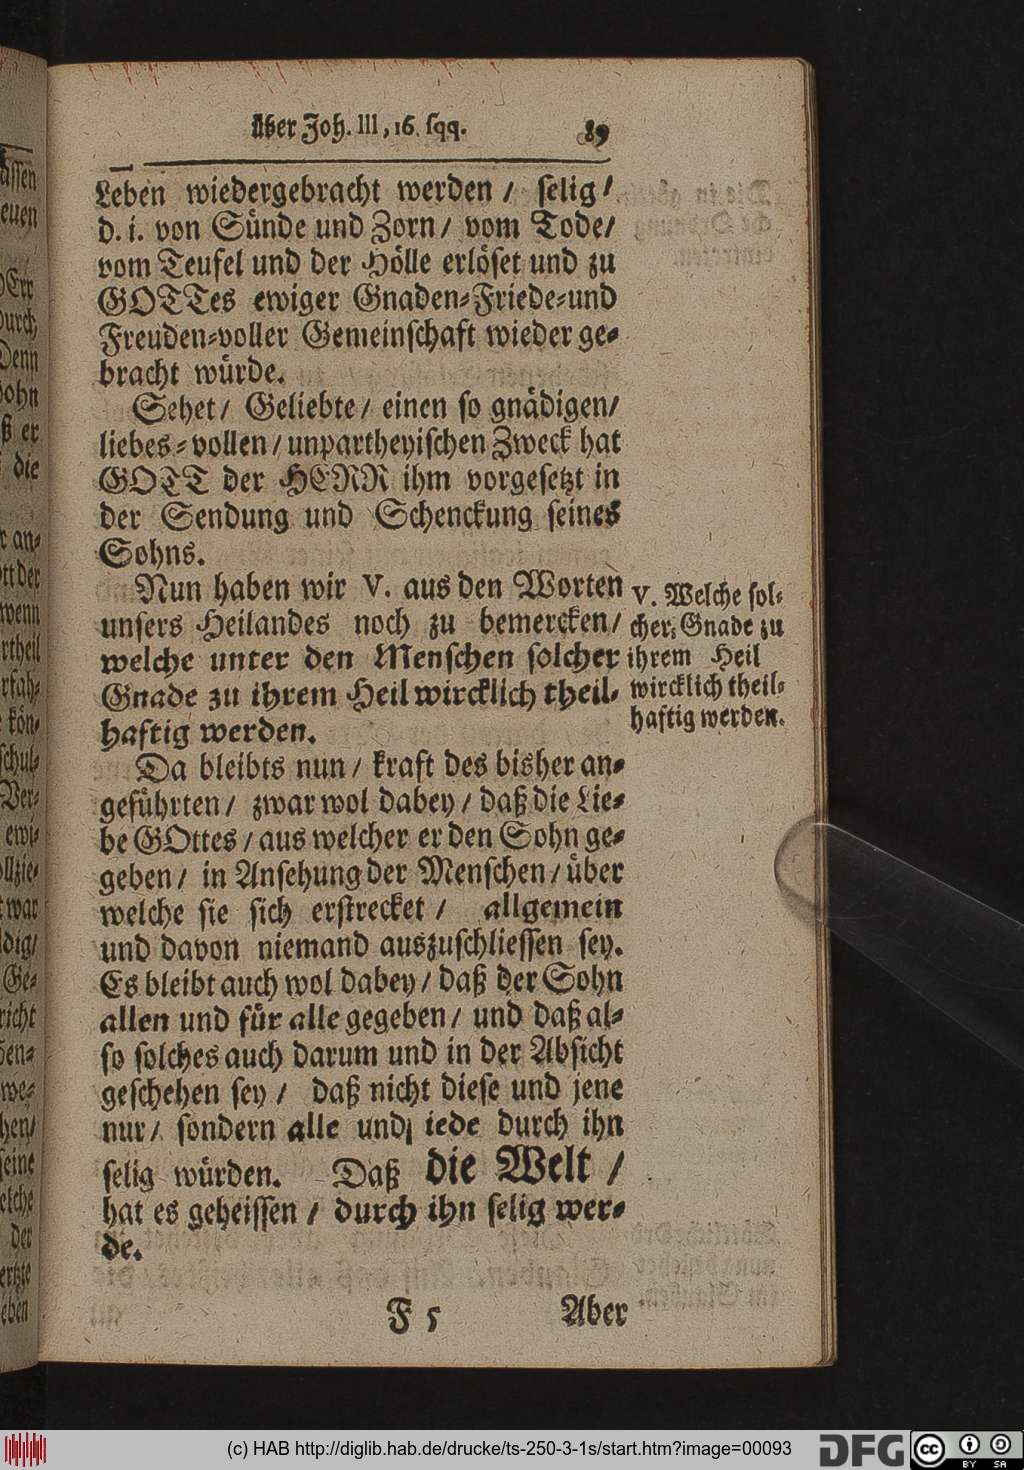 über Joh. III, 16. sqq. 89
Leben wiedergebracht werden / selig/
d. i. von Sünde und Zorn / vom Tode/
vom Teufel und der Hölle erlöset und zu
GOTTes ewiger Gnaden-Friede-und
Freuden-voller Gemeinschaft wieder ge-
bracht würde.
Sehet / Geliebte / einen so gnädigen/
liebes-vollen / unpartheyischen Zweck hat
GOTT der HERR ihm vorgesetzt in
der Sendung und Schenckung seines
Sohns.
Nun haben wir V. aus den Worten
unsers Heilandes noch zu bemercken/
welche unter den Menschen solcher
Gnade zu ihrem Heil wircklich theil-
haftig werden.
V. Welche sol-
cher Gnade zu
ihrem Heil
wircklich theil-
haftig werden.
Da bleibts nun / kraft des bisher an-
geführten / zwar wol dabey / daß die Lie-
be GOttes / aus welcher er den Sohn ge-
geben / in Ansehung der Menschen / über
welche sie sich erstrecket / allgemein
und davon niemand auszuschliessen sey.
Es bleibt auch wol dabey / daß der Sohn
allen und für alle gegeben / und daß al-
so solches auch darum und in der Absicht
geschehen sey / daß nicht diese und jene
nur / sondern alle und iede durch ihn
selig würden. Daß die Welt /
hat es geheissen / durch ihn selig wer-
de.
F 5 Aber
(c) HAB http://diglib.hab.de/drucke/ts-250-3-1s/start.htm?image=00093
DFG
cc BY SA